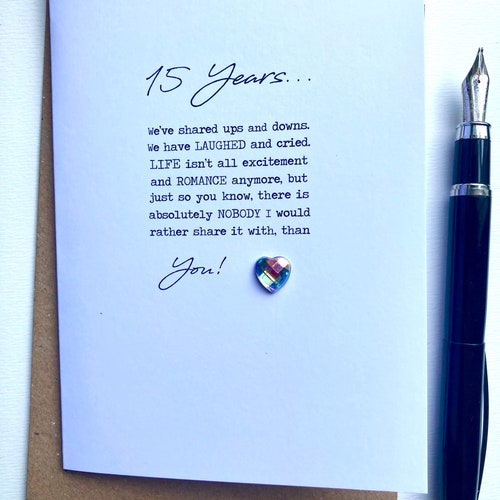 15 Years...
We've shared ups and downs.
We have LAUGHED and cried.
LIFE isn't all excitement
and ROMANCE anymore, but
just so you know, there is
absolutely NOBODY I would
rather share it with, than
You!